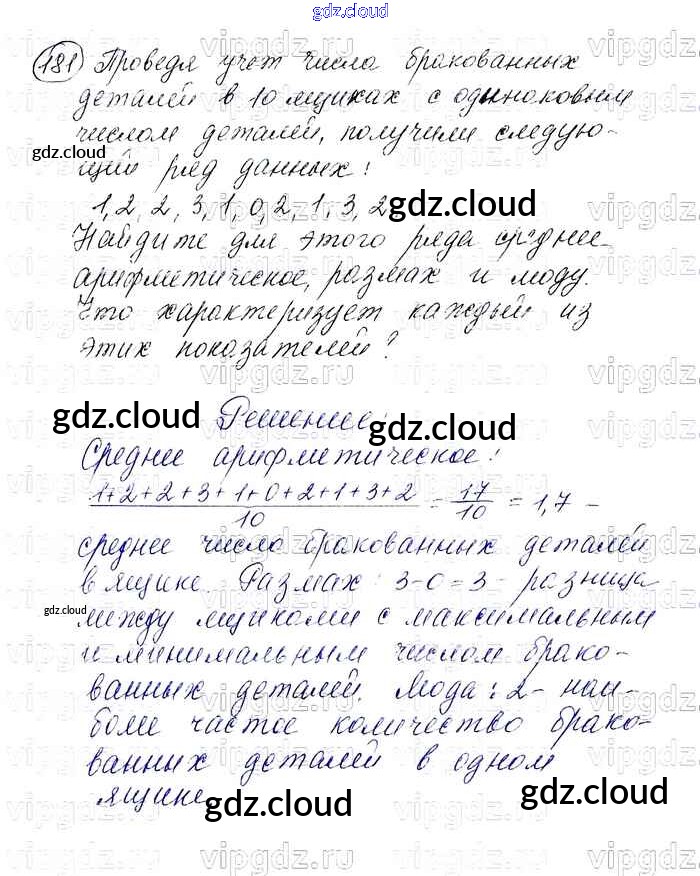 gdz.cloud
181 Проведя учет числа бракованных
деталей в 10 ящиках с одинаковым
числом деталей, получили следую-
щий ряд данных:
1, 2, 2, 3, 1, 0, 2, 1, 3, 2
Найдите для этого ряда среднее
арифметическое, размах и моду.
Что характеризует каждый из
этих показателей?
Решение:
Среднее арифметическое:
1+2+2+3+1+0+2+1+3+2/10 = 17/10 = 1,7 -
среднее число бракованных деталей
в ящике. Размах: 3-0=3 - разница
между ящиками с максимальным
и минимальным числом брако-
ванных деталей. Мода: 2 - наи-
более частое количество брако-
ванных деталей в одном
ящике
gdz.cloud
gdz.cloud
gdz.cloud
gdz.cloud
gdz.cloud
gdz.cloud
gdz.cloud
gdz.cloud
gdz.cloud
vipgdz.ru